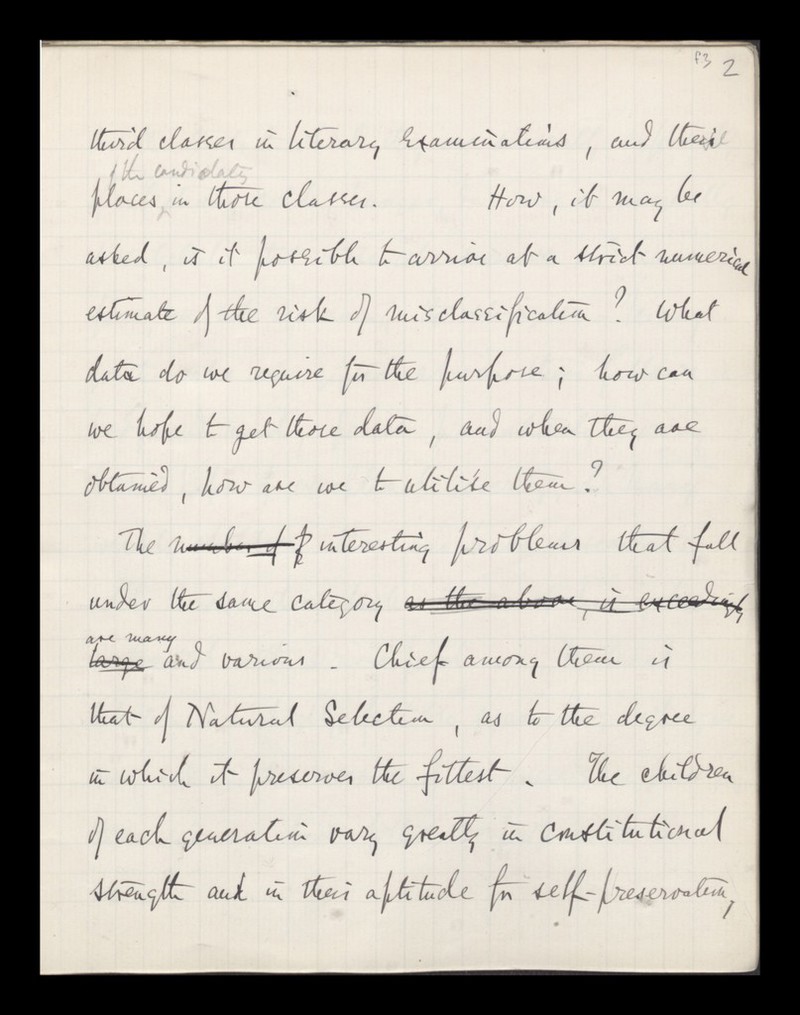 f3 2
third classes in literary examinations, and their
of the candidates
places in those classes. How, it may be
asked, is it possible to arrive at a strict numerical
estimate of the risk of misclassification? What
data do we require for the purpose; how can
we hope to get those data, and when they are
obtained, how are we to utilise them?
The number of interesting problems that fall
under the same category as the above, is exceedingly
are many
large and various. Chief among them is
that of Natural Selection, as to the degree
in which it preserves the fittest. The children
of each generation vary greatly in constitutional
strength and in their aptitude for self-preservation,